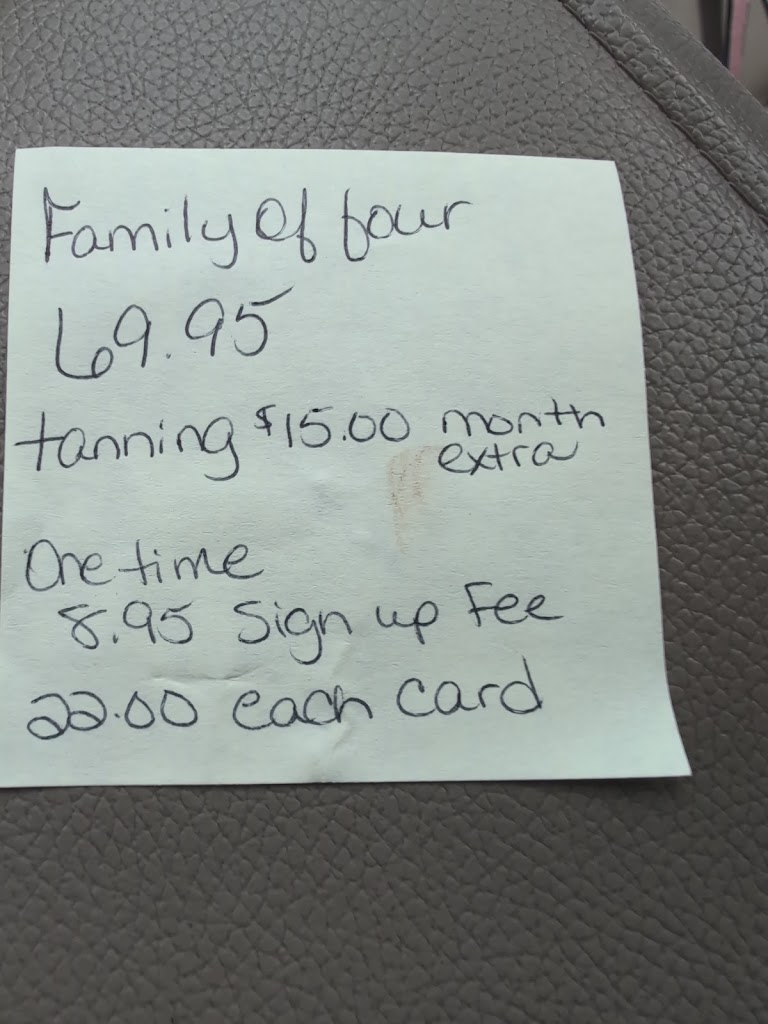 Family Of four
69.95
tanning $15.00 month
extra
One time
8.95 Sign up Fee
22.00 each card